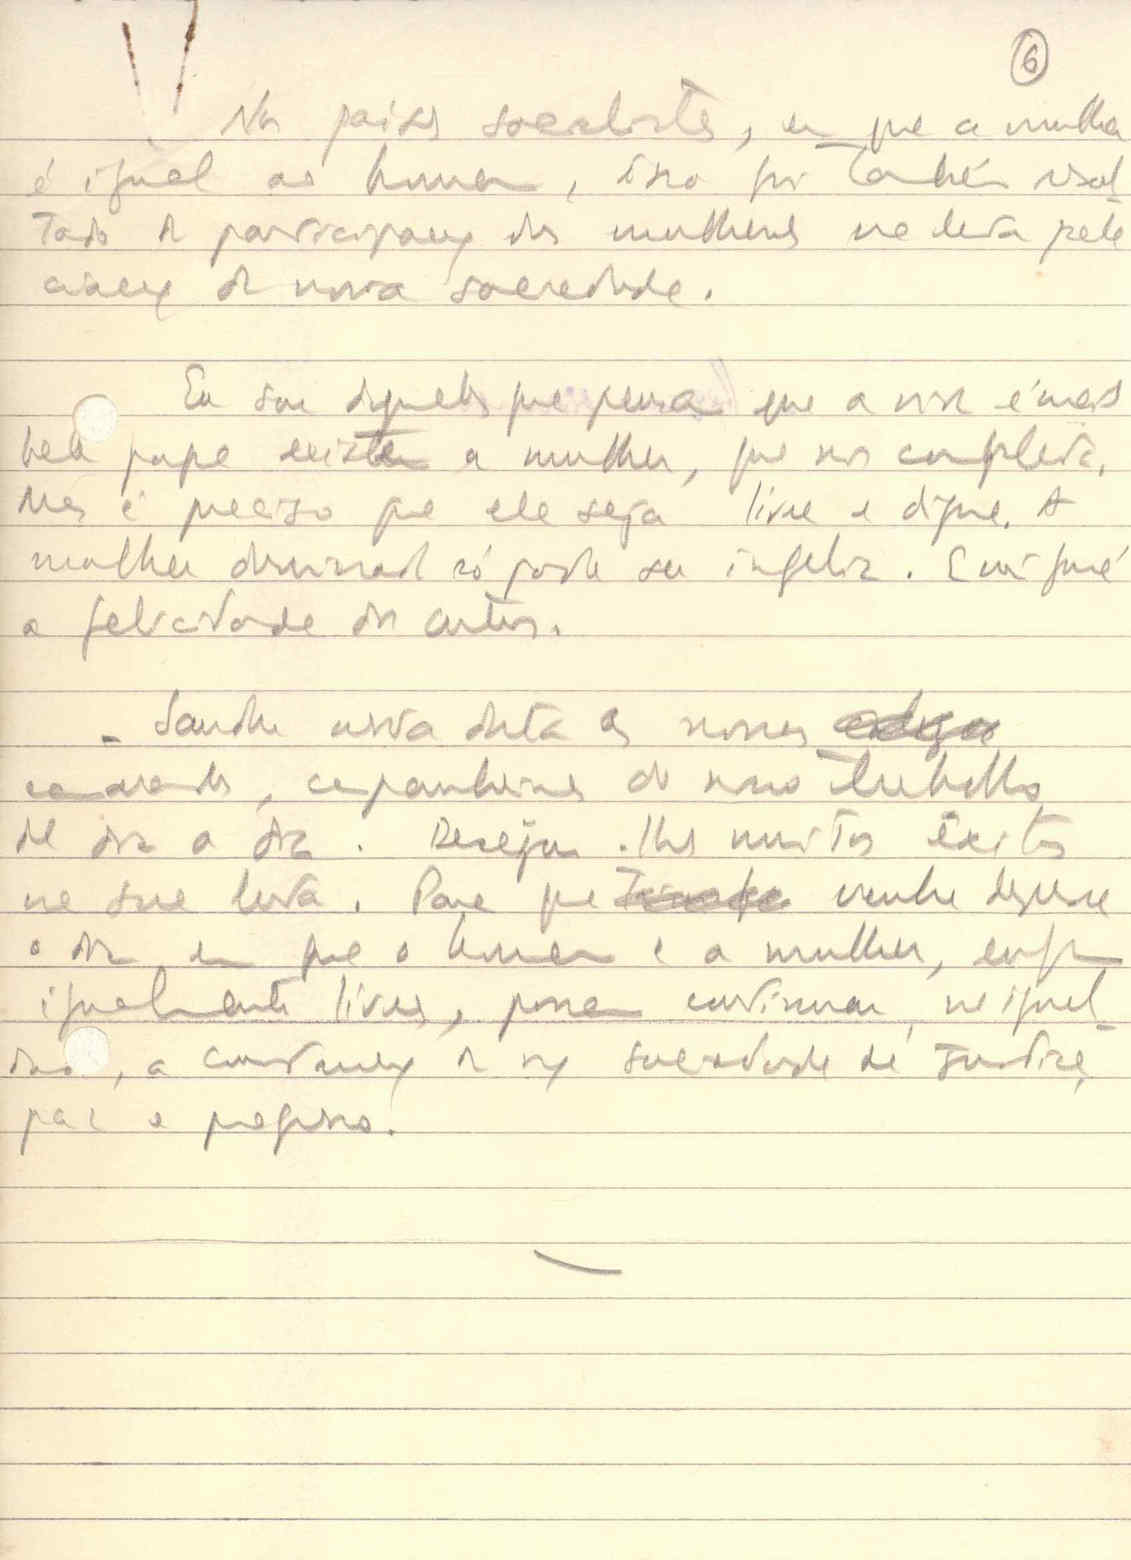 6
Nos paises socialistas, em que a mulher
é igual ao homem, isso foi também resul-
tado da participação das mulheres na luta pela
criação da nova sociedade.
Eu sou daqueles que pensa que a vida é mais
bela porque existem a mulher, que nos completa.
Mas é preciso que ela seja livre e digna. A
mulher dominada só pode ser infeliz. E
a felicidade dos outros.
- Saudar nesta data as nossas
camaradas, companheiras do nosso trabalho
de dia a dia. Desejar-lhes muitos êxitos
na sua luta. Para que venha depressa
o dia em que o homem e a mulher, enfim
igualmente livres, possam continuar, na igual-
dade, a construção da sociedade de justiça,
paz e progresso.